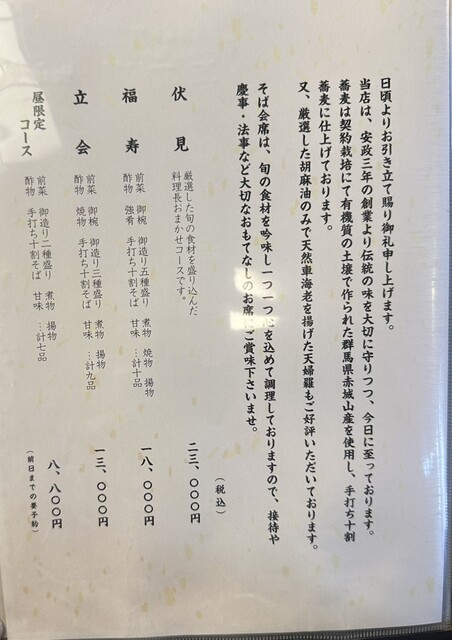 日頃よりお引き立て賜り御礼申し上げます。
当店は、安政三年の創業より伝統の味を大切に守りつつ、今日に至っております。
蕎麦は契約栽培にて有機質の土壌で作られた群馬県赤城山産を使用し、手打ち十割
蕎麦に仕上げております。
又、厳選した胡麻油のみで天然車海老を揚げた天婦羅もご好評いただいております。
そば会席は、旬の食材を吟味し一つ一つ心を込めて調理しておりますので、接待や
慶事・法事など大切なおもてなしのお席にご賞味下さいませ。
（税込）
伏見 厳選した旬の食材を盛り込んだ 二三、〇〇〇円
料理長おまかせコースです。
福寿 前菜 御椀 御造り五種盛り 煮物 焼物 揚物 一八、〇〇〇円
酢物 強肴 手打ち十割そば 甘味 …計十品
立会 前菜 御椀 御造り三種盛り 煮物 揚物 一三、〇〇〇円
酢物 焼物 手打ち十割そば 甘味 …計九品
昼限定 前菜 御造り二種盛り 煮物 揚物 八、八〇〇円
コース 酢物 手打ち十割そば 甘味 …計七品
（前日までの要予約）